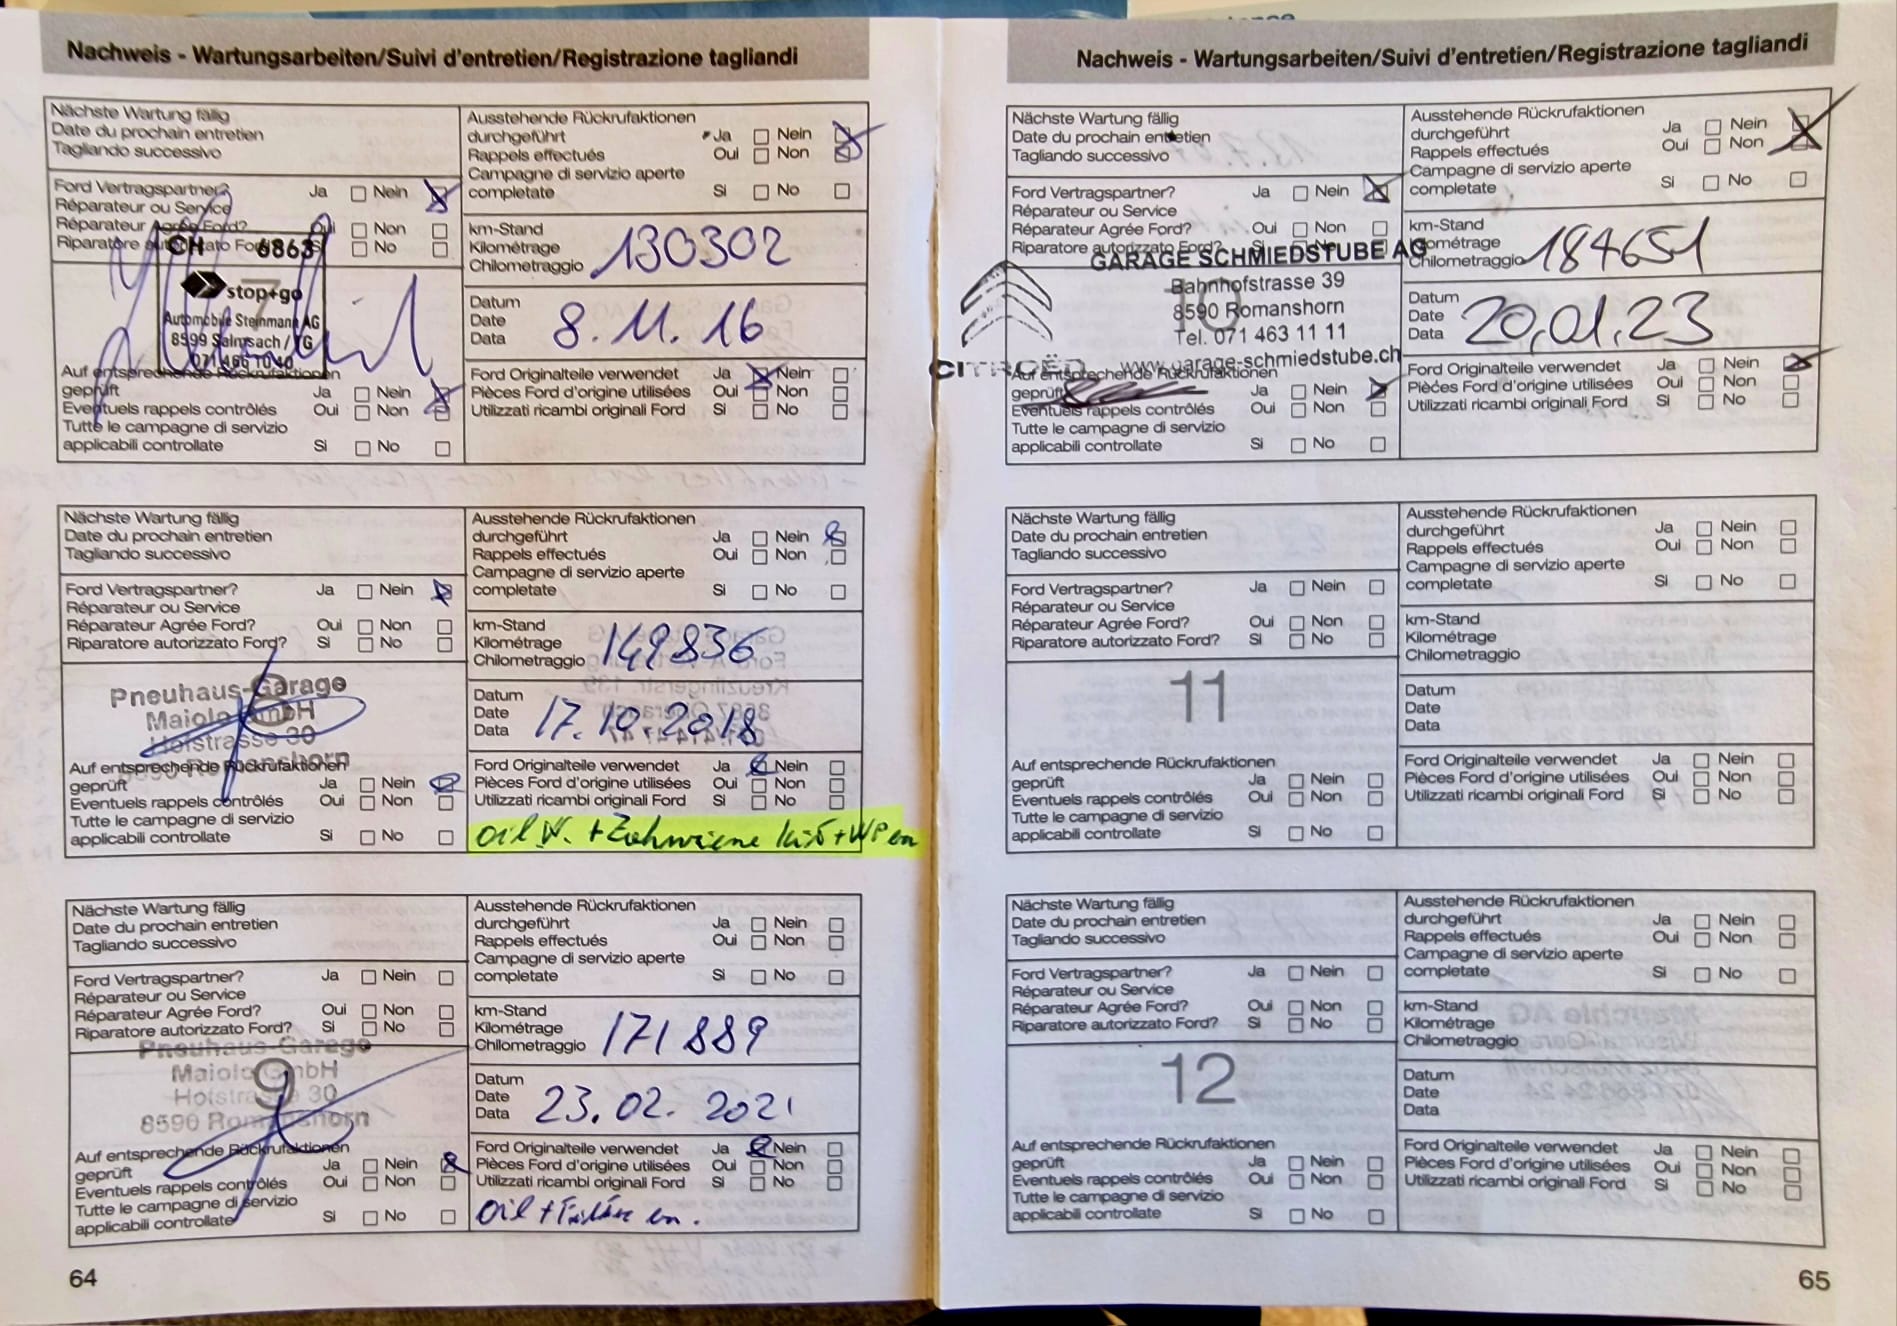 Nachweis - Wartungsarbeiten/Suivi d'entretien/Registrazione tagliandi
Nächste Wartung fällig
Date du prochain entretien
Tagliando successivo
Ausstehende Rückrufaktionen
durchgeführt Ja Nein
Rappels effectués Oui Non
Campagne di servizio aperte
completate Si No
Ford Vertragspartner? Ja Nein
Réparateur ou Service
Réparateur Agrée Ford? Oui Non
Riparatore autorizzato Ford? Si No
km-Stand
Kilométrage
Chilometraggio 130302
CH 6863
stop+go
Automobile Steinmann AG
8599 Salmsach / TG
071 466 10 40
7
Datum
Date
Data 8.11.16
Auf entsprechende Rückrufaktionen
geprüft Ja Nein
Eventuels rappels contrôlés Oui Non
Tutte le campagne di servizio
applicabili controllate Si No
Ford Originalteile verwendet Ja Nein
Pièces Ford d'origine utilisées Oui Non
Utilizzati ricambi originali Ford Si No
Nächste Wartung fällig
Date du prochain entretien
Tagliando successivo
Ausstehende Rückrufaktionen
durchgeführt Ja Nein
Rappels effectués Oui Non
Campagne di servizio aperte
completate Si No
Ford Vertragspartner? Ja Nein
Réparateur ou Service
Réparateur Agrée Ford? Oui Non
Riparatore autorizzato Ford? Si No
km-Stand
Kilométrage
Chilometraggio 149836
8
Pneuhaus-Garage
Maiolo GmbH
Hofstrasse 30
8590 Romanshorn
Datum
Date
Data 17.10.2018
Auf entsprechende Rückrufaktionen
geprüft Ja Nein
Eventuels rappels contrôlés Oui Non
Tutte le campagne di servizio
applicabili controllate Si No
Ford Originalteile verwendet Ja Nein
Pièces Ford d'origine utilisées Oui Non
Utilizzati ricambi originali Ford Si No
oil W. + Zahnriemen Kit + WP en
Nächste Wartung fällig
Date du prochain entretien
Tagliando successivo
Ausstehende Rückrufaktionen
durchgeführt Ja Nein
Rappels effectués Oui Non
Campagne di servizio aperte
completate Si No
Ford Vertragspartner? Ja Nein
Réparateur ou Service
Réparateur Agrée Ford? Oui Non
Riparatore autorizzato Ford? Si No
km-Stand
Kilométrage
Chilometraggio 171889
9
Pneuhaus-Garage
Maiolo GmbH
Hofstrasse 30
8590 Romanshorn
Datum
Date
Data 23.02.2021
Auf entsprechende Rückrufaktionen
geprüft Ja Nein
Eventuels rappels contrôlés Oui Non
Tutte le campagne di servizio
applicabili controllate Si No
Ford Originalteile verwendet Ja Nein
Pièces Ford d'origine utilisées Oui Non
Utilizzati ricambi originali Ford Si No
oil + en.
64
Nachweis - Wartungsarbeiten/Suivi d'entretien/Registrazione tagliandi
Nächste Wartung fällig
Date du prochain entretien
Tagliando successivo
Ausstehende Rückrufaktionen
durchgeführt Ja Nein
Rappels effectués Oui Non
Campagne di servizio aperte
completate Si No
Ford Vertragspartner? Ja Nein
Réparateur ou Service
Réparateur Agrée Ford? Oui Non
Riparatore autorizzato Ford? Si No
km-Stand
Kilométrage
Chilometraggio 184651
10
GARAGE SCHMIEDSTUBE AG
Bahnhofstrasse 39
8590 Romanshorn
Tel. 071 463 11 11
www.garage-schmiedstube.ch
CITROËN
Datum
Date
Data 20.01.23
Auf entsprechende Rückrufaktionen
geprüft Ja Nein
Eventuels rappels contrôlés Oui Non
Tutte le campagne di servizio
applicabili controllate Si No
Ford Originalteile verwendet Ja Nein
Pièces Ford d'origine utilisées Oui Non
Utilizzati ricambi originali Ford Si No
Nächste Wartung fällig
Date du prochain entretien
Tagliando successivo
Ausstehende Rückrufaktionen
durchgeführt Ja Nein
Rappels effectués Oui Non
Campagne di servizio aperte
completate Si No
Ford Vertragspartner? Ja Nein
Réparateur ou Service
Réparateur Agrée Ford? Oui Non
Riparatore autorizzato Ford? Si No
km-Stand
Kilométrage
Chilometraggio
11
Datum
Date
Data
Auf entsprechende Rückrufaktionen
geprüft Ja Nein
Eventuels rappels contrôlés Oui Non
Tutte le campagne di servizio
applicabili controllate Si No
Ford Originalteile verwendet Ja Nein
Pièces Ford d'origine utilisées Oui Non
Utilizzati ricambi originali Ford Si No
Nächste Wartung fällig
Date du prochain entretien
Tagliando successivo
Ausstehende Rückrufaktionen
durchgeführt Ja Nein
Rappels effectués Oui Non
Campagne di servizio aperte
completate Si No
Ford Vertragspartner? Ja Nein
Réparateur ou Service
Réparateur Agrée Ford? Oui Non
Riparatore autorizzato Ford? Si No
km-Stand
Kilométrage
Chilometraggio
12
Datum
Date
Data
Auf entsprechende Rückrufaktionen
geprüft Ja Nein
Eventuels rappels contrôlés Oui Non
Tutte le campagne di servizio
applicabili controllate Si No
Ford Originalteile verwendet Ja Nein
Pièces Ford d'origine utilisées Oui Non
Utilizzati ricambi originali Ford Si No
65